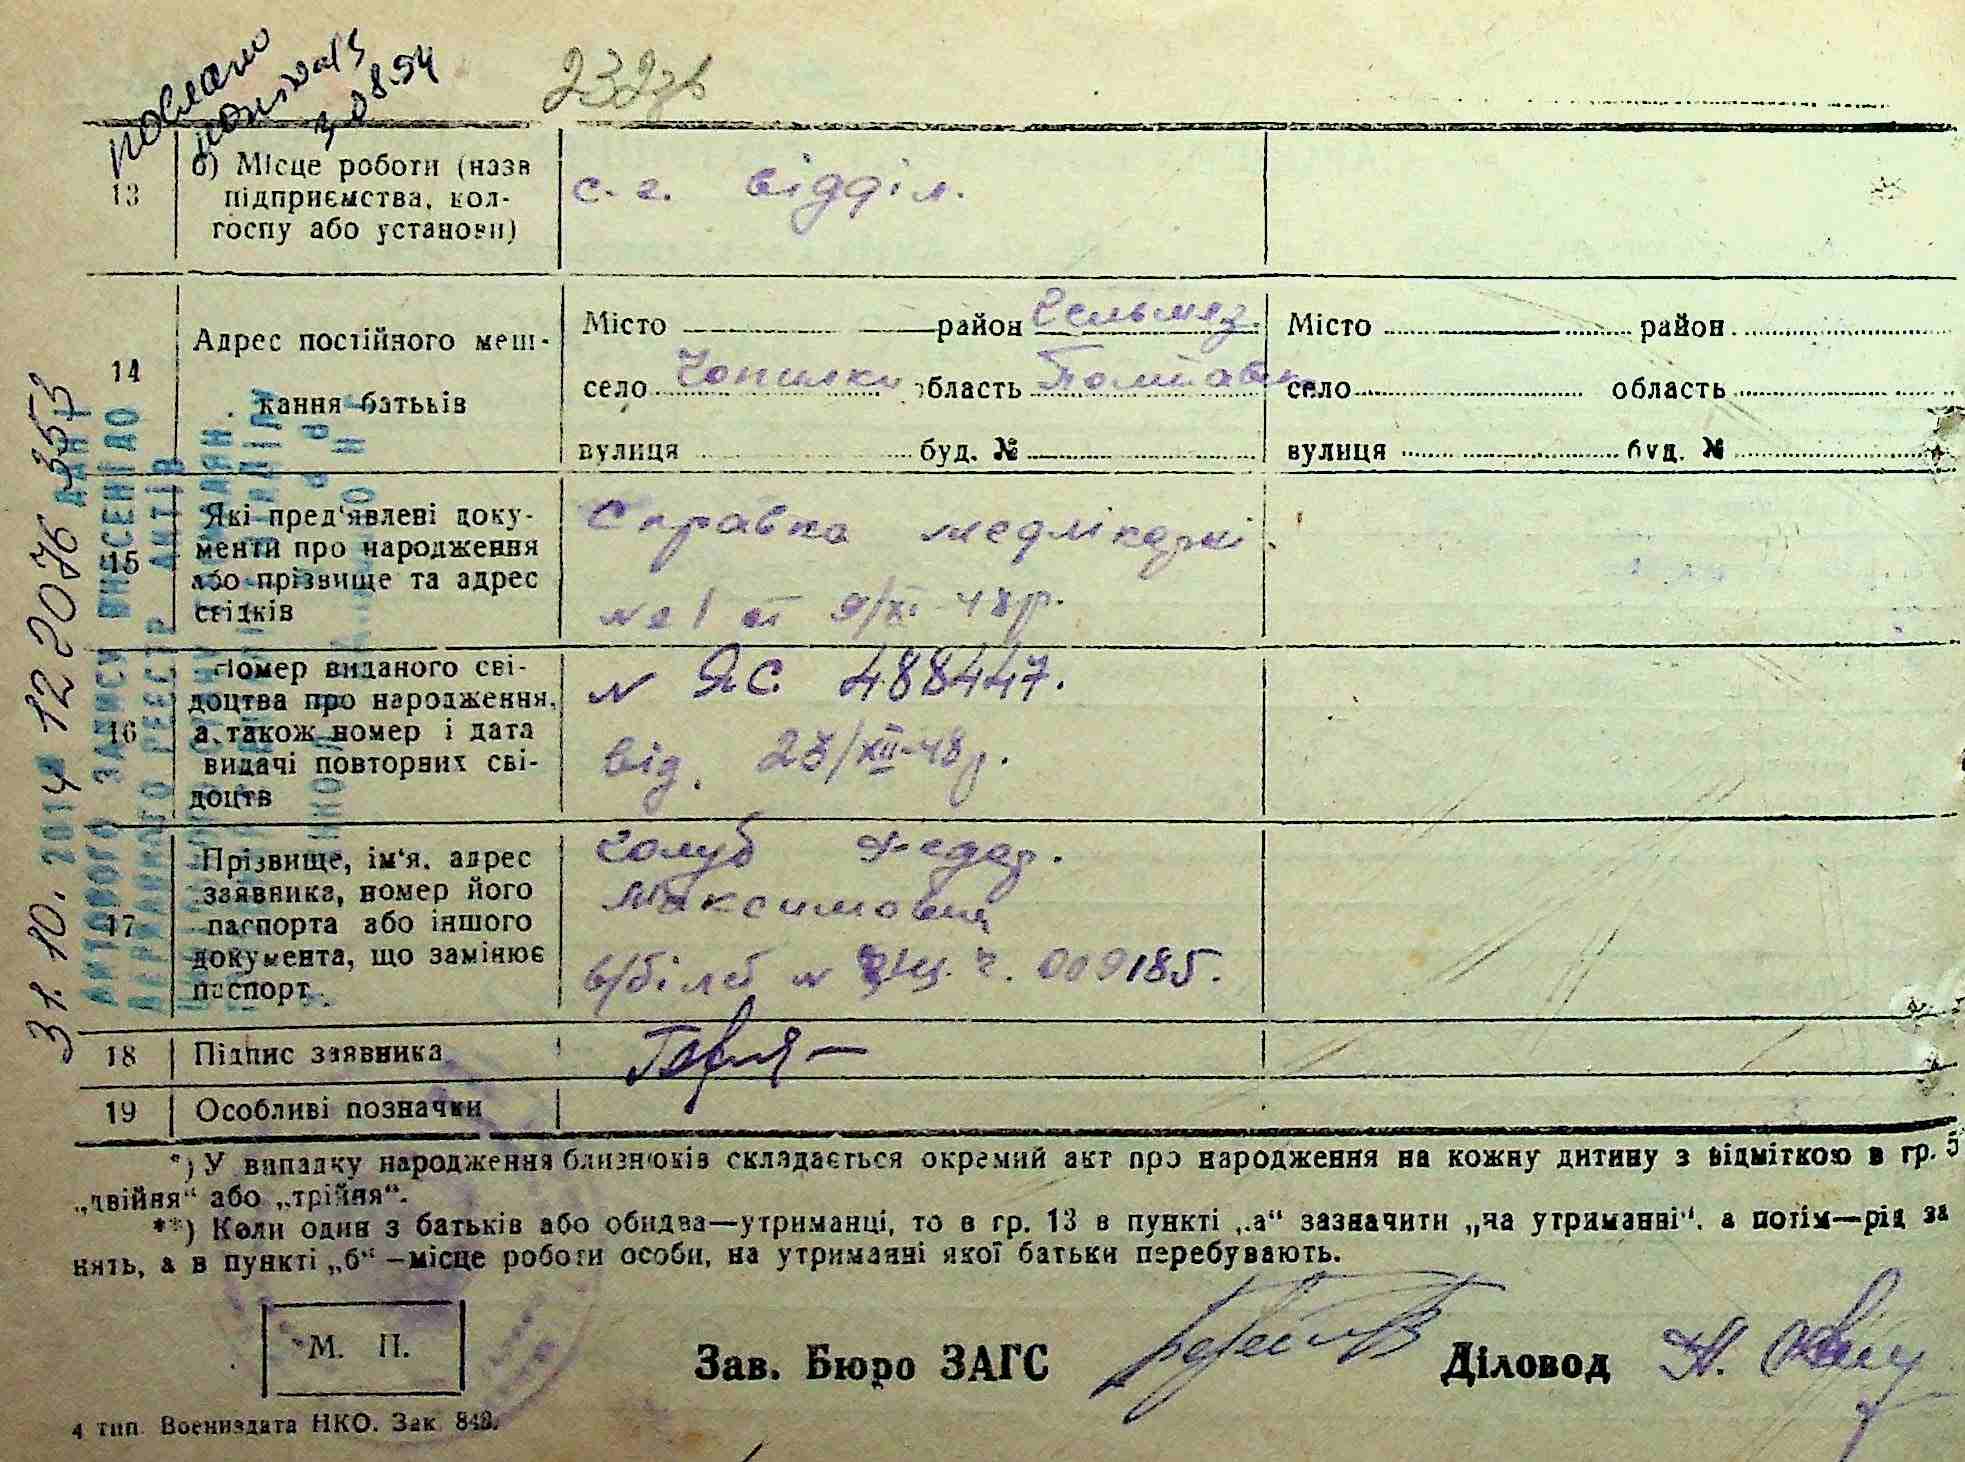 послано
3.08.94
232
13
б) Місце роботи (назв
підприємства, кол-
госпу або установи)
с.-г. відділ.
14
Адрес постійного меш-
кання батьків
Місто район Гельмяз.
село Чопилки область Полтавськ
вулиця буд. №
Місто район
село область
вулиця буд. №
15
Які пред'явлеві доку-
менти про народження
або прізвище та адрес
свідків
Справка медлікарні
№ 1 від 9/XI-48р.
16
Номер виданого сві-
доцтва про народження,
а також номер і дата
видачі повторних сві-
доцтв
N ЯС. 488447.
від. 23/XII-48р.
17
Прізвище, ім'я, адрес
заявника, номер його
паспорта або іншого
документа, що замінює
паспорт
Голуб Федор.
Максимович
в/білет N ч. 009185.
18
Підпис заявника
19
Особливі позначки
*) У випадку народження близнюків складається окремий акт про народження на кожну дитину з відміткою в гр. 5
„двійня“ або „трійня“.
**) Коли один з батьків або обидва—утриманці, то в гр. 13 в пункті „а“ зазначити „на утриманні“, а потім—рід за
нять, а в пункті „б“—місце роботи особи, на утриманні якої батьки перебувають.
М. П.
Зав. Бюро ЗАГС Діловод
4 тип. Воениздата НКО. Зак. 843.
31.10.2014 12 2076 353
АКТОВОГО ЗАПИСУ ВНЕСЕНІ ДО
ДЕРЖАВНОГО РЕЄСТР АКТІВ